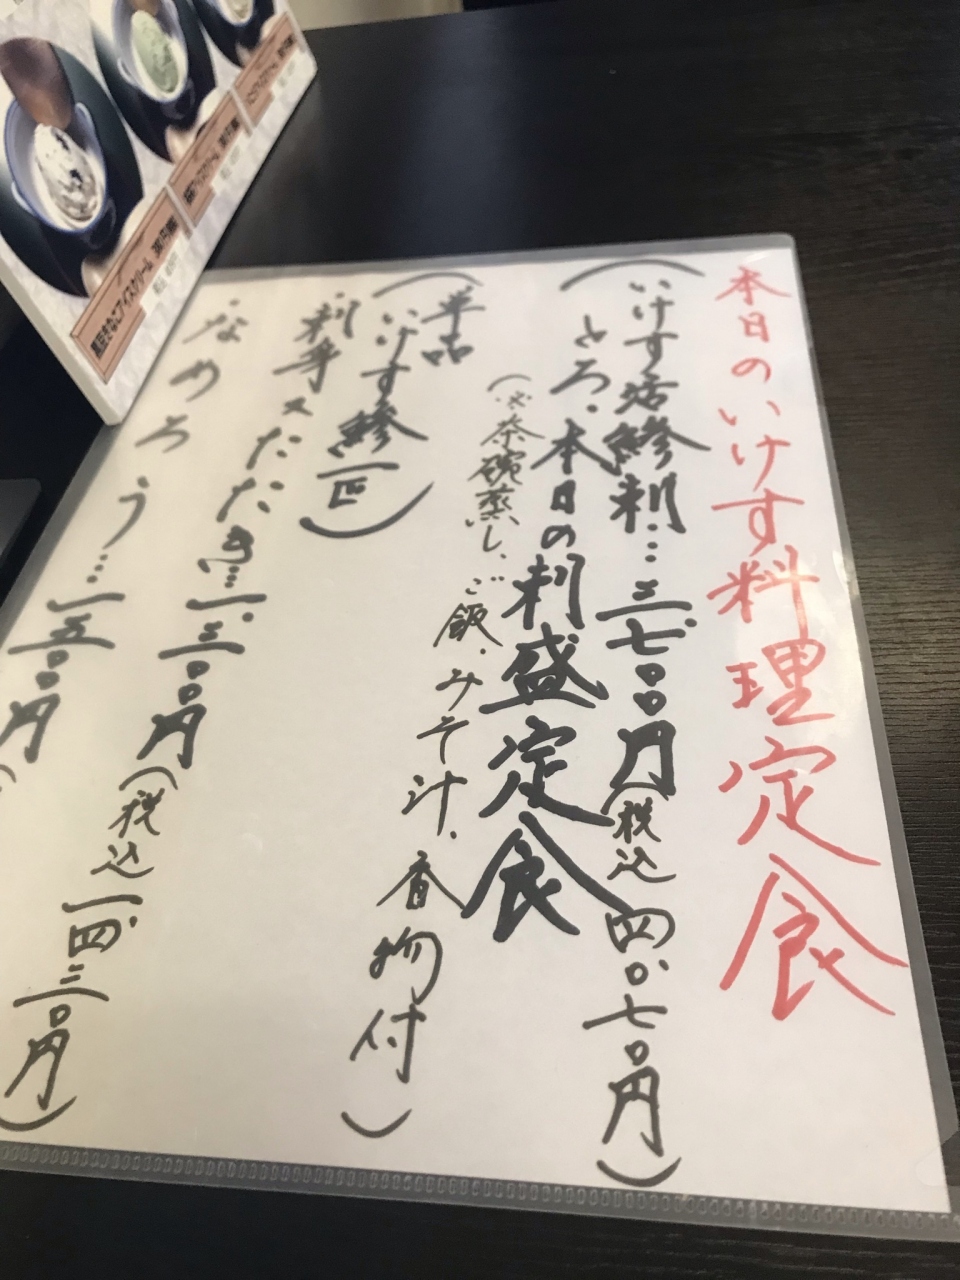 本日のいけす料理定食
(いけす活鯵刺…三.七〇〇円(税込四.〇七〇円)
とろ、本日の刺盛定食
(※茶碗蒸し、ご飯、みそ汁、香物付)
単品
(いけす鯵一匹)
刺身 又 たたき…一.三〇〇円(税込一四.三〇円)
なめろう…一五〇〇円(
黒豆きなこアイスクリーム